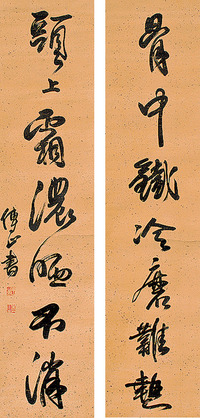 骨中鐵冷磨難熱
頭上霜濃晒不消
書